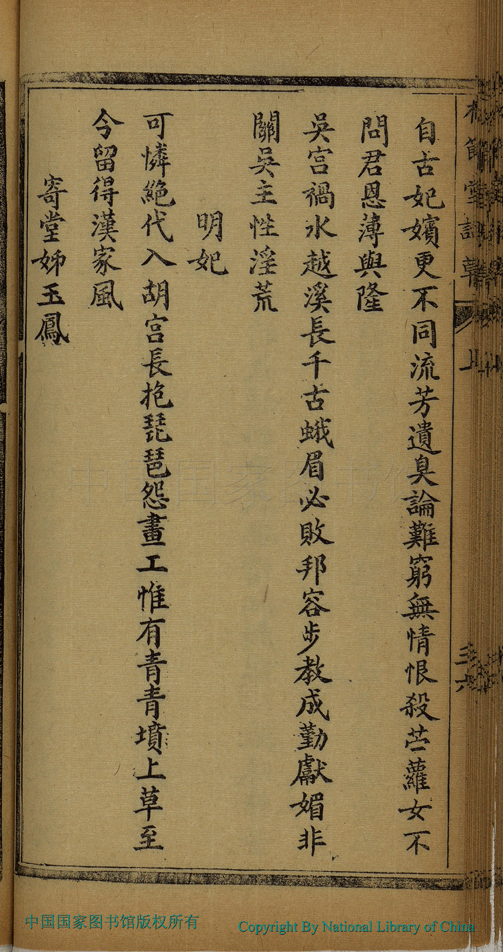 自古妃嬪更不同流芳遺臭論難窮無情恨殺苧蘿女不
問君恩薄與隆
吳宮禍水越溪長千古蛾眉必敗邦容步教成勤獻媚非
關吳主性淫荒
明妃
可憐絕代入胡宮長抱琵琶怨畫工惟有青青墳上草至
今留得漢家風
寄堂姊玉鳳
中国国家图书馆版权所有
Copyright By National Library of China